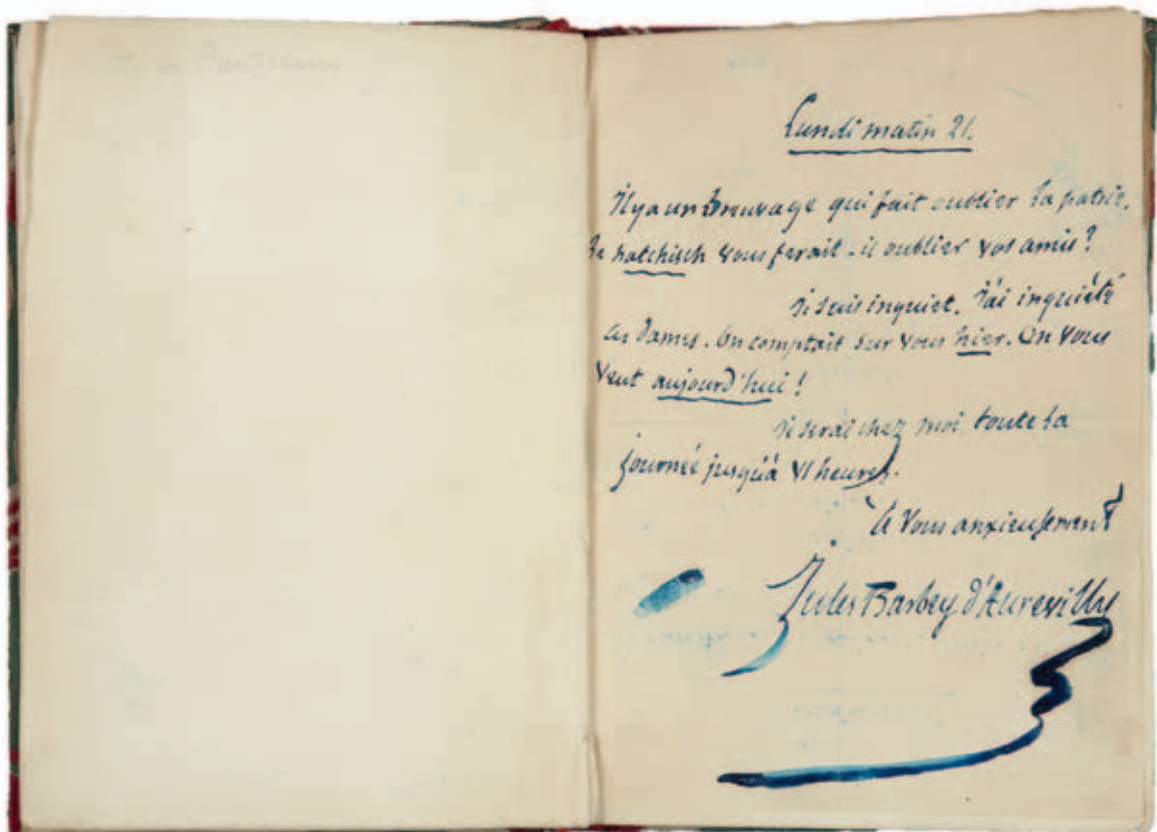 Lundi matin 21.
Il y a un breuvage qui fait oublier la patrie.
Le hatchisch vous ferait-il oublier vos amis?
Je suis inquiet. J'ai inquiété
ces Dames. On comptait sur vous hier. On vous
veut aujourd'hui!
Je serai chez moi toute la
journée jusqu'à VI heures.
à Vous anxieusement
Jules Barbey d'Aurevilly